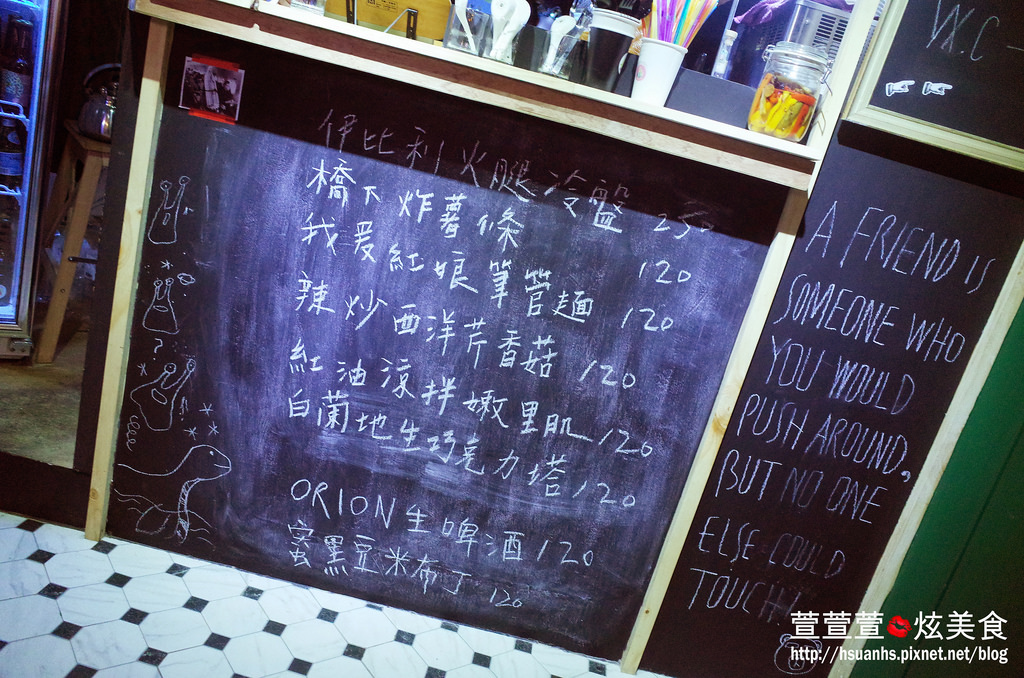 伊比利火腿冷盤 23
橋下炸薯條 120
我愛紅娘筆管麵 120
辣炒西洋芹香菇 120
紅油涼拌嫩里肌 120
白蘭地生巧克力塔 120
ORION生啤酒 120
蜜黑豆米布丁 120
W.C
A FRIEND IS
SOMEONE WHO
YOU WOULD
PUSH AROUND,
BUT NO ONE
ELSE COULD
TOUCH!
萱萱萱 炫美食
http://hsuanhs.pixnet.net/blog